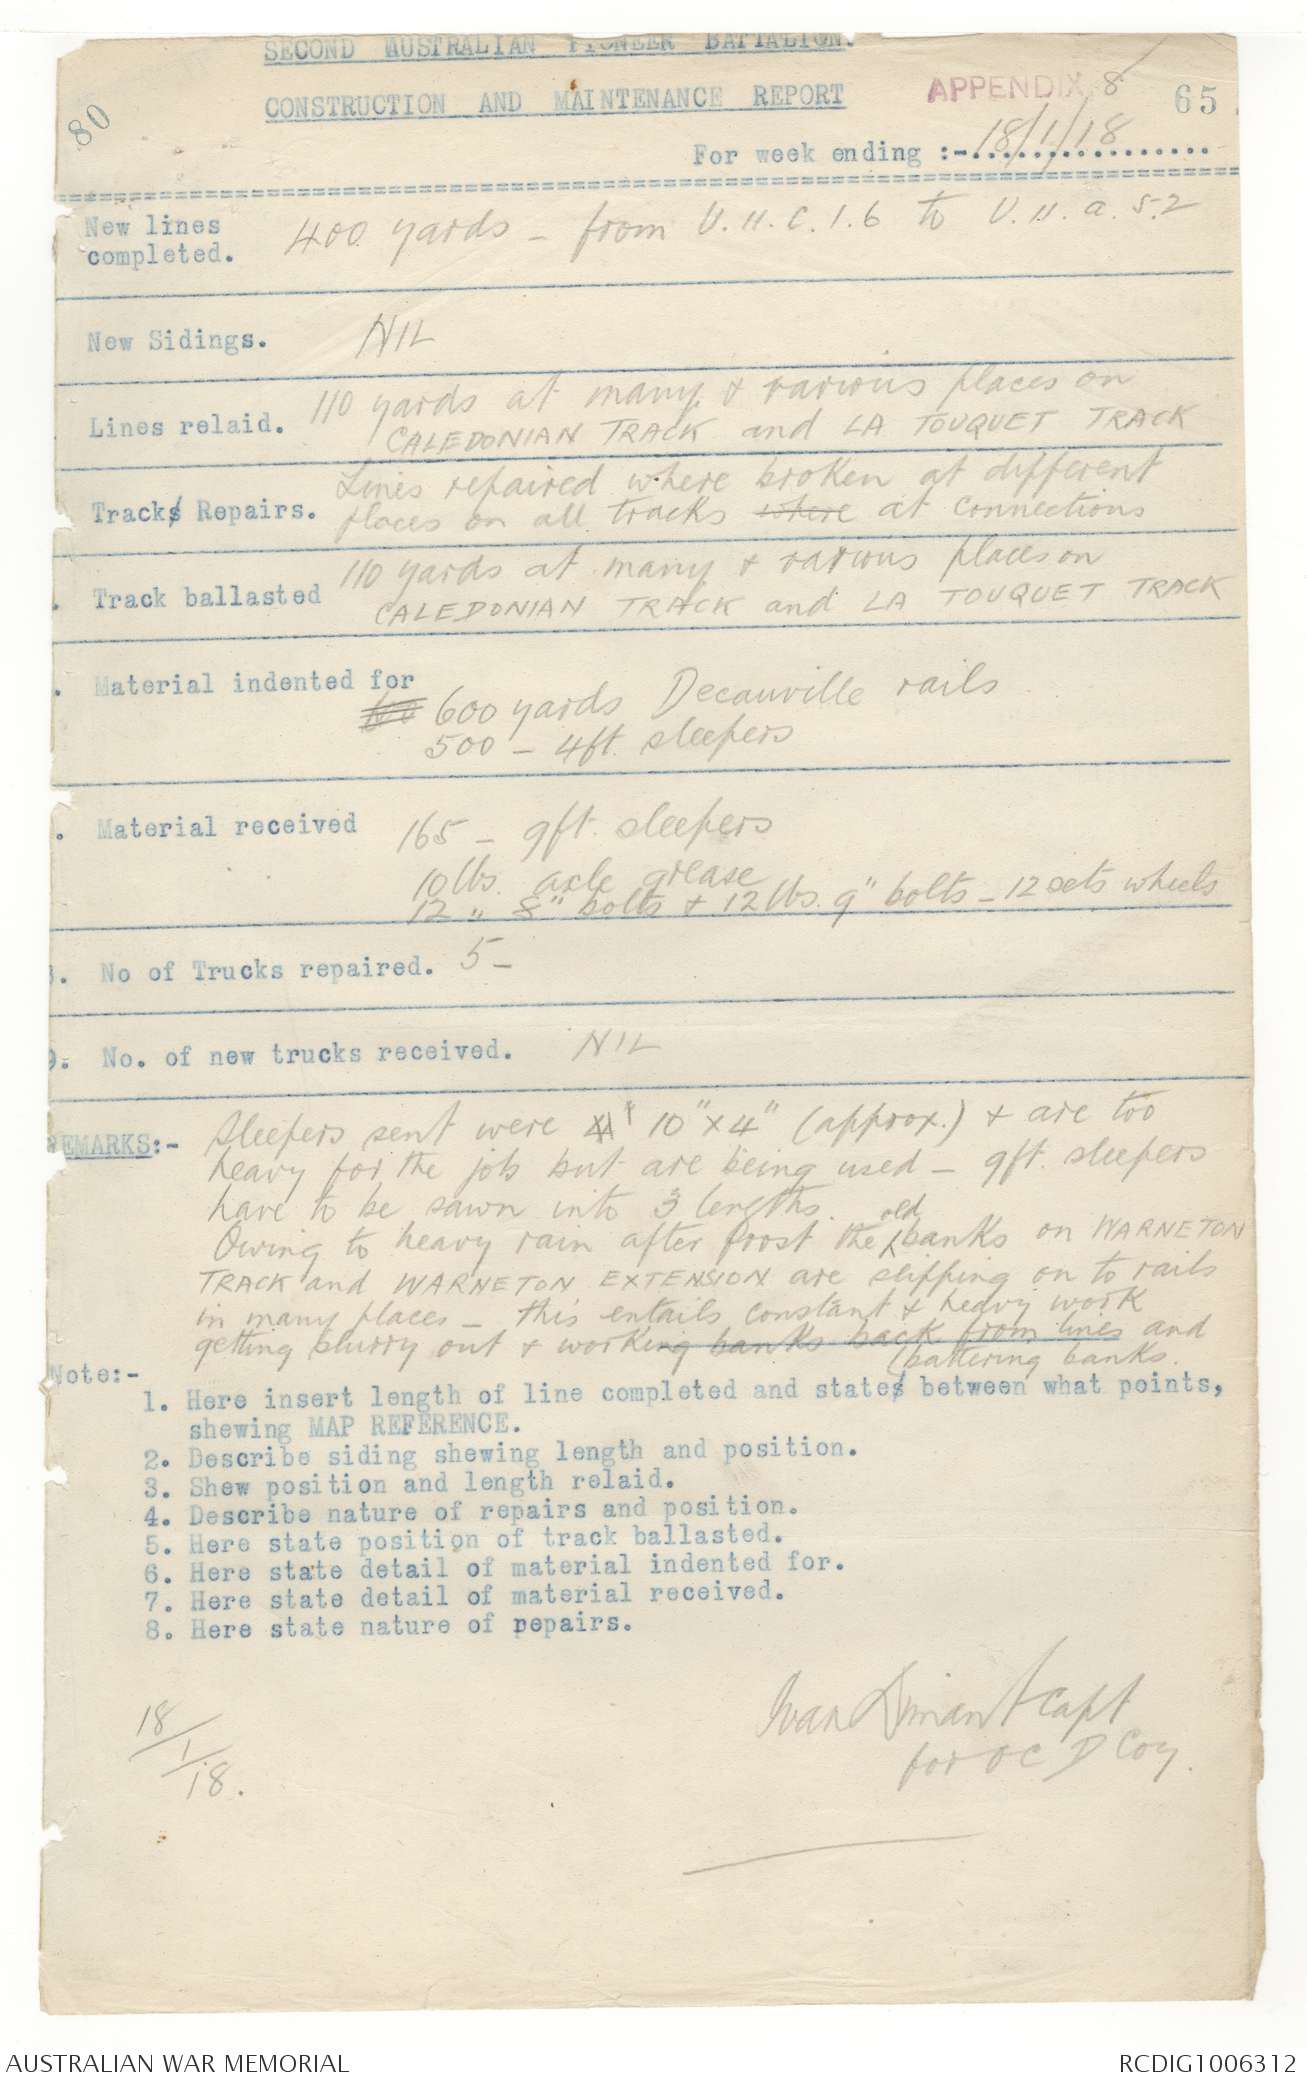 SECOND AUSTRALIAN PIONEER BATTALION.
CONSTRUCTION AND MAINTENANCE REPORT
APPENDIX 8
65
80
For week ending :- 18/1/18
New lines completed. 400 yards - from U.11.c.1.6 to U.11.a.5.2
New Sidings. NIL
Lines relaid. 110 yards at many & various places on
CALEDONIAN TRACK and LA TOUQUET TRACK
Tracks Repairs. Lines repaired where broken at different
places on all tracks where at connections
Track ballasted 110 yards at many & various places on
CALEDONIAN TRACK and LA TOUQUET TRACK
Material indented for
600 yards Decauville rails
500 - 4ft. sleepers
Material received 165 - 9ft. sleepers
10 lbs. axle grease
12 " 8" bolts & 12 lbs. 9" bolts - 12 sets wheels
8. No of Trucks repaired. 5 -
9. No. of new trucks received. NIL
REMARKS:- Sleepers sent were 10" x 4" (approx.) & are too
heavy for the job but are being used - 9ft. sleepers
have to be sawn into 3 lengths.
Owing to heavy rain after frost the old banks on WARNETON
TRACK and WARNETON EXTENSION are slipping on to rails
in many places - this entails constant & heavy work
getting slurry out & working banks back from lines and
battering banks.
Note:-
1. Here insert length of line completed and states between what points,
shewing MAP REFERENCE.
2. Describe siding shewing length and position.
3. Shew position and length relaid.
4. Describe nature of repairs and position.
5. Here state position of track ballasted.
6. Here state detail of material indented for.
7. Here state detail of material received.
8. Here state nature of repairs.
18/1/18.
Ivan Capt
for OC D Coy.
AUSTRALIAN WAR MEMORIAL
RCDIG1006312